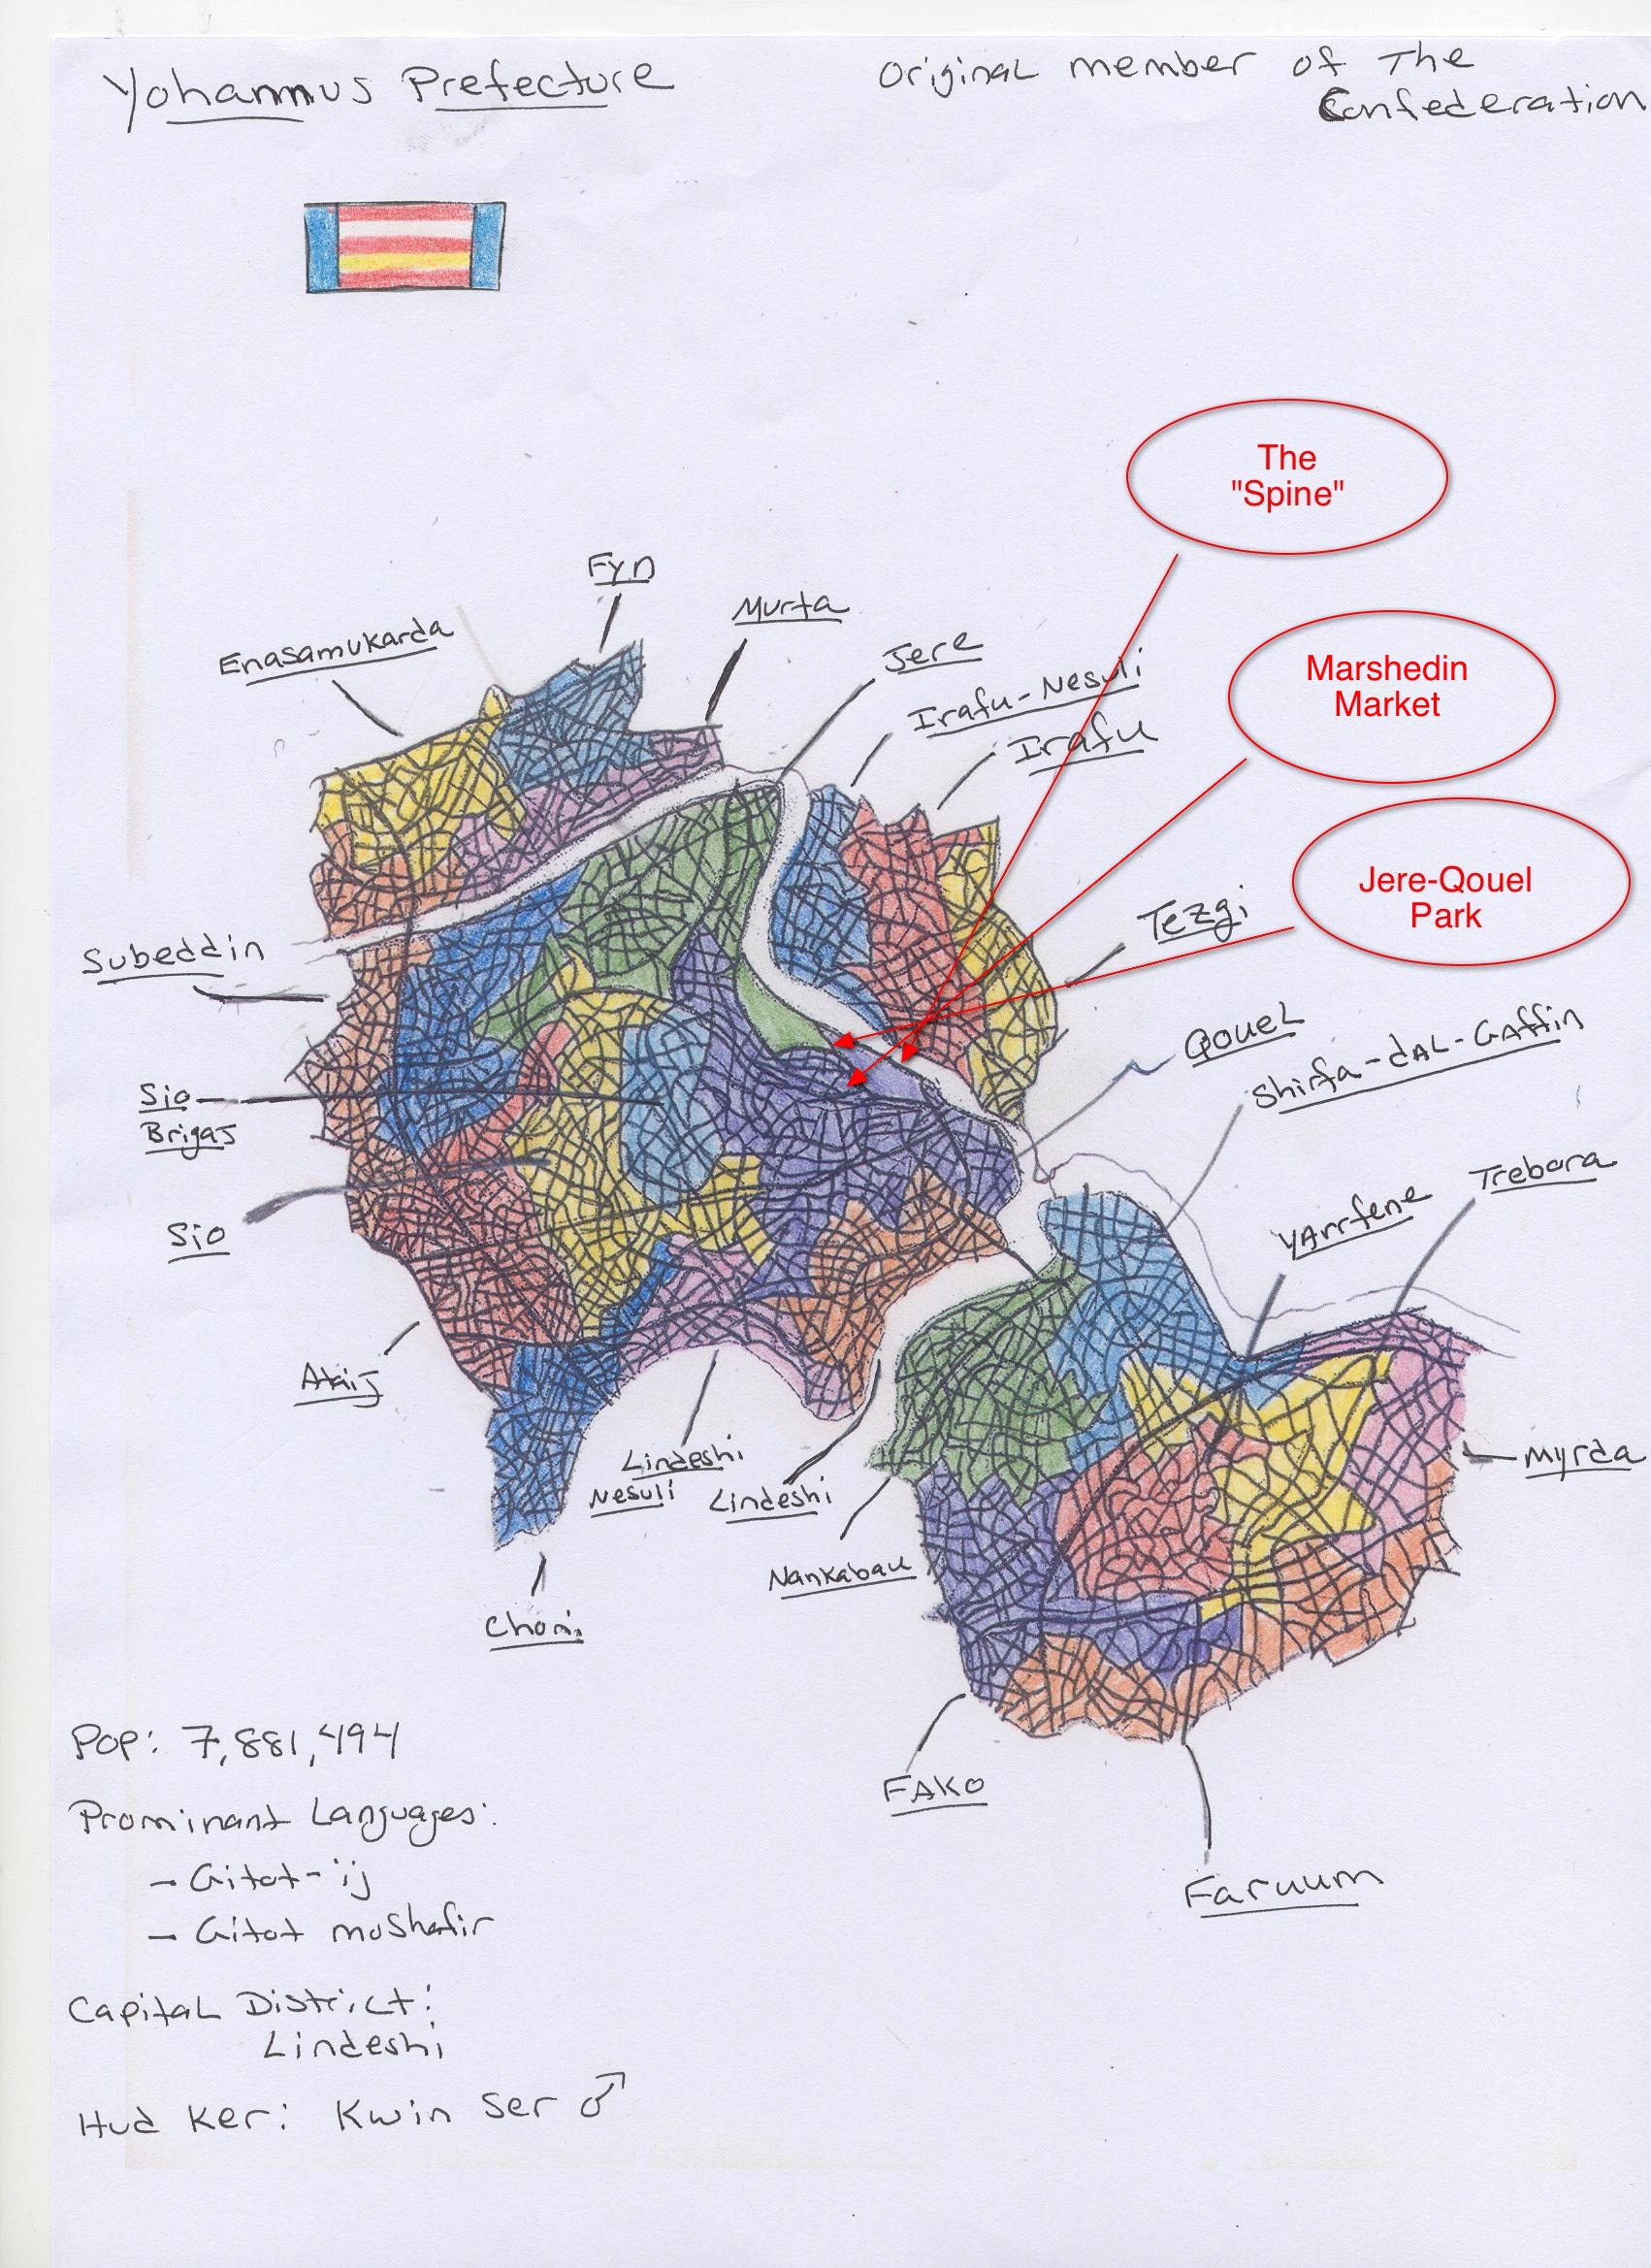 Yohannus Prefecture
Original member of The
Confederation
The
"Spine"
Fyn
Murta
Enasamukarda
Jere
Irafu-Nesuli
Irafu
Marshedin
Market
Jere-Qouel
Park
Tezgi
Subeddin
Qouel
Shirfa-dal-Gaffin
Sio
Brigas
Trebora
Yarrfene
Sio
Ataij
Lindeshi
Nesuli
Lindeshi
Myrda
Nankabau
Chori
Pop: 7,881,494
Fako
Prominant Languages:
- Gitot-ij
- Gitot moshafir
Faruum
Capital District:
Lindeshi
Hud Ker: Kwin Ser ♂